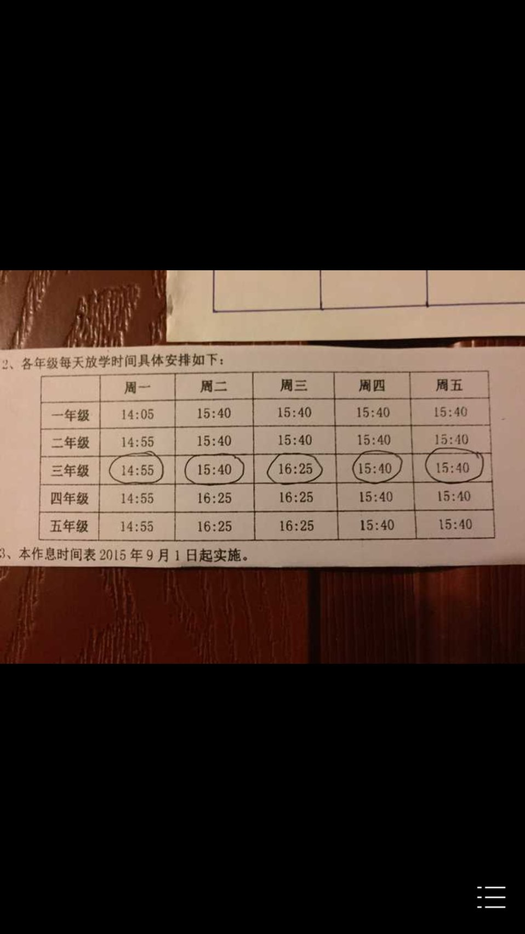 2、各年级每天放学时间具体安排如下：
周一 周二 周三 周四 周五
一年级 14:05 15:40 15:40 15:40 15:40
二年级 14:55 15:40 15:40 15:40 15:40
三年级 14:55 15:40 16:25 15:40 15:40
四年级 14:55 16:25 16:25 15:40 15:40
五年级 14:55 16:25 16:25 15:40 15:40
3、本作息时间表 2015 年 9 月 1 日起实施。